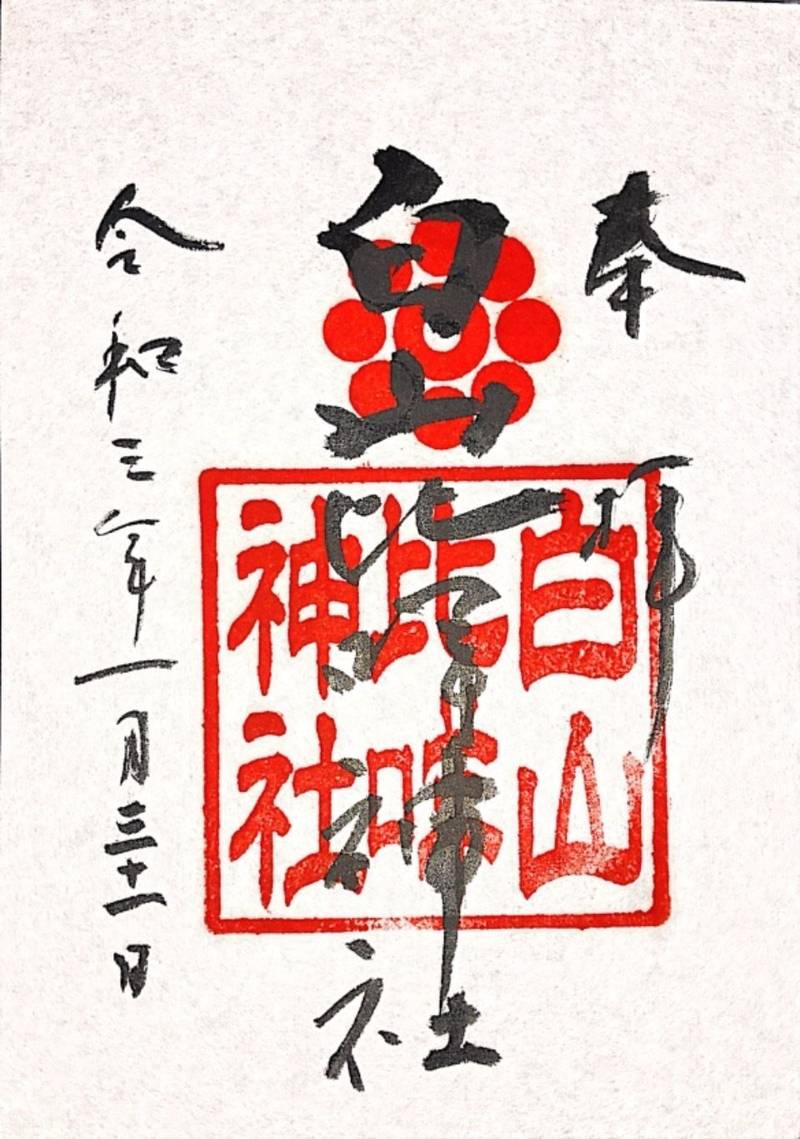 奉拝
白山比咩神社
白山
比咩
神社
令和三年一月三十一日